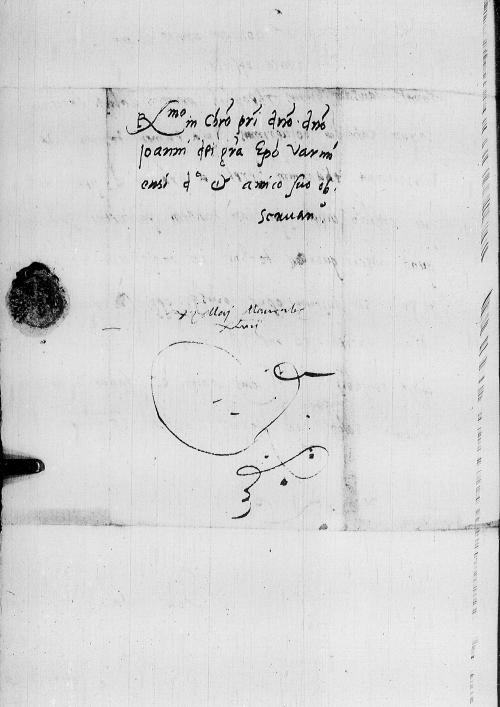 R^mo in Chro pri dno dno
Joanni dei gra Epo Varmi
ensi d^o et amico suo ob,
seruan^o
Maij
xlvij